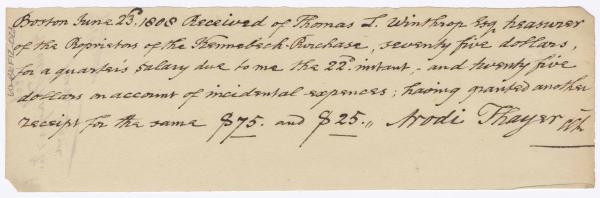 Boston June 23d. 1808 Received of Thomas L. Winthrop Esq. treasurer
of the Proprietors of the Kennebeck-Purchase, seventy five dollars,
for a quarter's salary due to me the 22d. instant,- and twenty five
dollars on account of incidental expences; having granted another
receipt for the same $75. and $25.,, Arodi Thayer